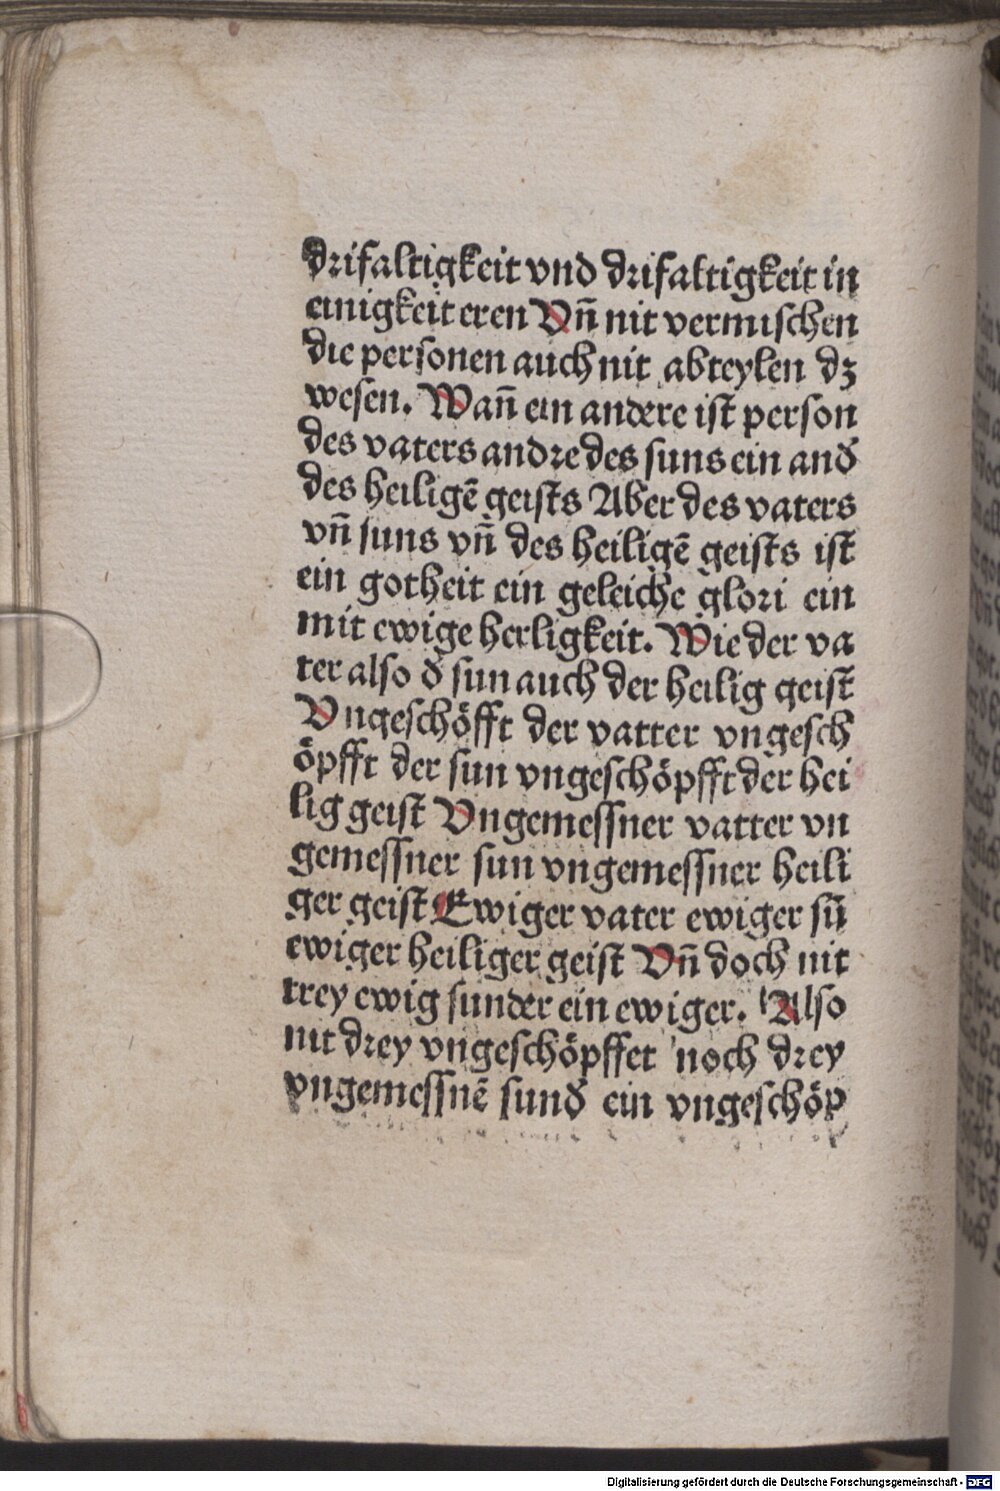 drifaltigkeit vnd drifaltigkeit in
einigkeit eren Vn̄ nit vermischen
die personen auch nit abteylen dz
wesen. Wan̄ ein andere ist person
des vaters andre des suns ein and̕
des heiligē geists Aber des vaters
vn̄ suns vn̄ des heiligē geists ist
ein gotheit ein geleiche glori ein
mit ewige herligkeit. Wie der va
ter also d̕ sun auch der heilig geist
Vngeschöfft der vatter vngesch
öpfft der sun vngeschöpfft der hei
lig geist Vngemessner vatter vn
gemessner sun vngemessner heili
ger geist Ewiger vater ewiger sū
ewiger heiliger geist Vn̄ doch nit
trey ewig sunder ein ewiger. Also
nit drey vngeschöpffet noch drey
vngemessnē sund̕ ein vngeschöp
Digitalisierung gefördert durch die Deutsche Forschungsgemeinschaft - DFG